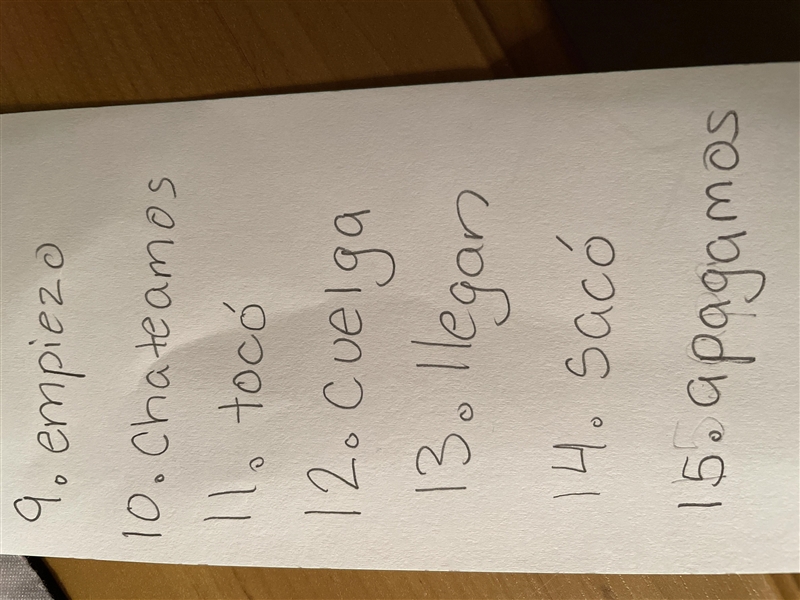 9. empiezo
10. chateamos
11. tocó
12. cuelga
13. llegan
14. sacó
15. apagamos